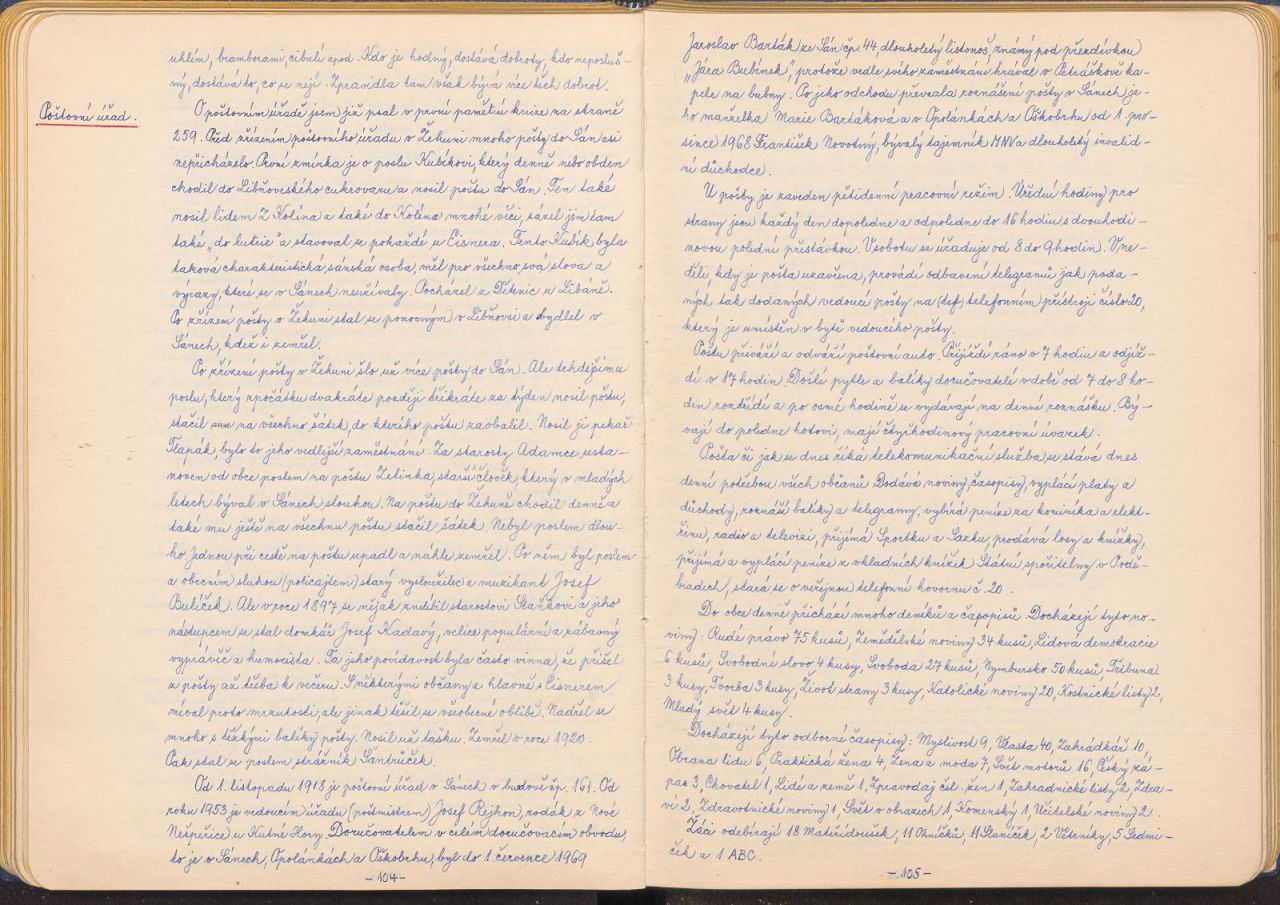 uhlím, bramborami, cibulí apod. Kdo je hodný, dostává dobroty, kdo neposluš-
ný, dostává to, co se nejí. Zpravidla tam však bývá více těch dobrot.
Poštovní úřad.
O poštovním úřadě jsem již psal v první pamětní knize na straně
259. Před zřízením poštovního úřadu v Žehuni mnoho pošty do Sán asi
nepřicházelo. První zmínka je o poslu Kubíkovi, který denně nebo obden
chodil do Libňoveského cukrovaru a nosil poštu do Sán. Ten také
nosil lidem z Kolína a také do Kolína mnohé věci, sázel jim tam
také „do lutrie" a stavoval se pokaždé u Eisnera. Tento Kubík byla
taková charakteristická sánská osoba, měl pro všechno svá slova a
výrazy, které se v Sánech neužívaly. Pocházel z Dětenic u Libáně.
Po zřízení pošty v Žehuni stal se ponocným v Libňovsi a bydlel v
Sánech, kdež i zemřel.
Po zřízení pošty v Žehuni šlo už více pošty do Sán. Ale tehdejšímu
poslu, který zpočátku dvakráte později třikráte za týden nosil poštu,
stačil na všechno šátek, do kterého poštu zaobalil. Nosil ji pekař
Tlapák, bylo to jeho vedlejší zaměstnání. Za starosty Adamce usta-
noven od obce poslem na poštu Zelinka, starší člověk, který v mladých
letech býval v Sánech slouhou. Na poštu do Žehuně chodil denně a
také mu ještě na všechnu poštu stačil šátek. Nebyl poslem dlou-
ho. Jednou při cestě na poštu upadl a náhle zemřel. Po něm byl poslem
a obecním sluhou (policajtem) starý vysloužilec a muzikant Josef
Bulíček. Ale v roce 1897 se nějak znelíbil starostovi Staňkovi a jeho
nástupcem se stal domkář Josef Kadavý, velice populární a zábavný
vypravěč a humorista. Ta jeho povídavost byla často vinna, že přišel
z pošty až třeba k večeru. S některými občany a hlavně s Eisnerem
míval proto mrzutosti, ale jinak těšil se všeobecné oblibě. Nadřel se
mnoho s těžkými balíky pošty. Nosil už tašku. Zemřel v roce 1920.
Pak stal se poslem strážník Šantrůček.
Od 1. listopadu 1918 je poštovní úřad v Sánech v budově čp. 161. Od
roku 1953 je vedoucím úřadu (poštmistrem) Josef Rejhon, rodák z Nové
Nešpeřice u Kutné Hory. Doručovatelem v celém doručovacím obvodu,
to je v Sánech, Opolánkách a Oškobrhu, byl do 1. července 1969
-104-
Jaroslav Barták ze Sán čp. 44, dlouholetý listonoš, známý pod přezdívkou
„Jára Bubínek", protože vedle svého zaměstnání hrával v Petráškově ka-
pele na bubny. Po jeho odchodu převzala roznášení pošty v Sánech je-
ho manželka Marie Bartáková a v Opolánkách a Oškobrhu od 1. pro-
since 1968 František Novotný, bývalý tajemník MNV a dlouholetý invalid-
ní důchodce.
U pošty je zaveden pětidenní pracovní režim. Úřední hodiny pro
strany jsou každý den dopoledne a odpoledne do 16 hodin s dvouhodi-
novou polední přestávkou. V sobotu se úřaduje od 8 do 9 hodin. V ne-
děli, kdy je pošta uzavřena, provádí odbavení telegramů jak poda-
ných tak dodaných vedoucí pošty na (def) telefonním přístroji číslo 20,
který je umístěn v bytě vedoucího pošty.
Poštu přiváží a odváží poštovní auto. Přijíždí ráno v 7 hodin a odjíž-
dí v 17 hodin. Došlé pytle a balíky doručovatelé v době od 7 do 8 ho-
din roztřídí a po osmé hodině se vydávají na denní roznášku. Bý-
vají do poledne hotovi, mají čtyřhodinový pracovní úvazek.
Pošta či jak se dnes říká telekomunikační služba, se stává dnes
denní potřebou všech občanů. Dodává noviny, časopisy, vyplácí platy a
důchody, roznáší balíky a telegramy, vybírá peníze za kominíka a elekt-
řinu, radio a televizi, přijímá Sportku a Sazku, prodává losy a knížky,
přijímá a vyplácí peníze z vkladních knížek Státní spořitelny v Podě-
bradech, stará se o veřejnou telefonní hovornu č. 20.
Do obce denně přichází mnoho deníků a časopisů. Docházejí tyto no-
viny: Rudé právo 75 kusů, Zemědělské noviny 34 kusů, Lidová demokracie
6 kusů, Svobodné slovo 4 kusy, Svoboda 27 kusů, Nymbursko 50 kusů, Tribuna
3 kusy, Tvorba 3 kusy, Život strany 3 kusy, Katolické noviny 20, Kostnické listy 2,
Mladý svět 4 kusy.
Docházejí tyto odborné časopisy: Myslivost 9, Vlasta 40, Zahrádkář 10,
Obrana lidu 6, Praktická žena 4, Žena a moda 7, Svět motorů 16, Český zá-
pas 3, Chovatel 1, Lidé a země 1, Zpravodaj čsl. žen 1, Zahradnické listy 2, Zdra-
ví 2, Zdravotnické noviny 1, Svět v obrazech 1, Komenský 1, Učitelské noviny 2.
Žáci odebírají 18 Mateřídoušek, 11 Ohníčků, 11 Sluníček, 2 Větrníky, 5 Sedmi-
ček a 1 ABC.
-105-